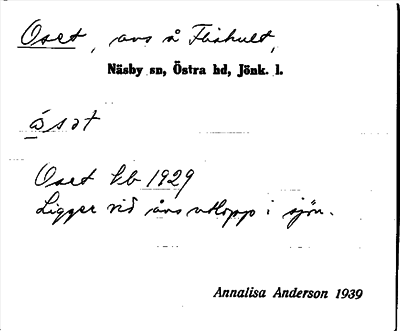 Oset, avs å Fliahult,
Näsby sn, Östra hd, Jönk. l.
åsət
Oset kb 1929
Ligger vid åns utlopp i sjön.
Annalisa Anderson 1939